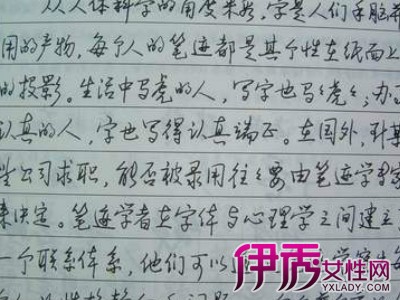 从人体科学的角度来看,字是人们手脑并
用的产物,每个人的笔迹都是其个性在纸面上
的投影。生活中马虎的人,写字也马马虎虎;办事
认真的人,字也写得认真端正。在国外,到某
些公司求职,能否被录用往往要由笔迹学专家
来决定。笔迹学者在字体与心理学之间建立了
一个联系体系,他们可以
伊秀女性网
YXLADY.COM